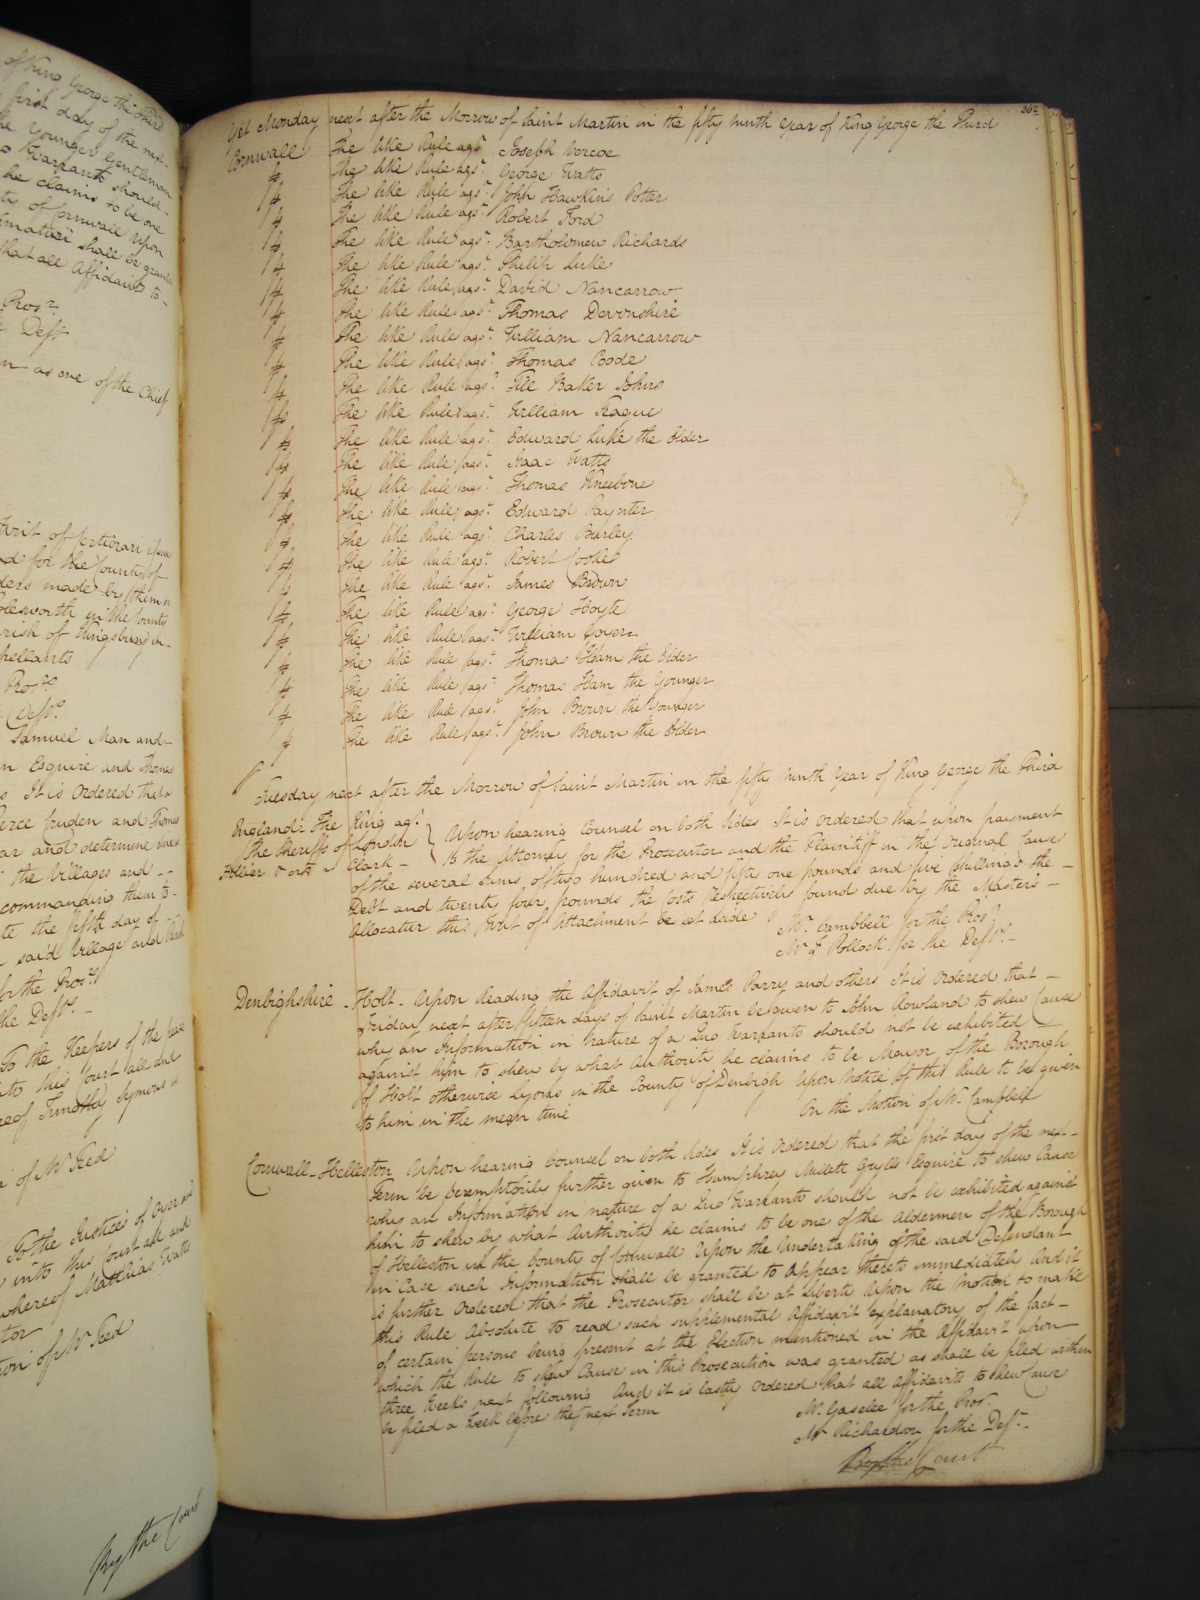 of King George the Third
first day of the next
the younger Gentleman
o Warrants should
he claims to be one
of Cornwall upon
shall be granted
that all Affidavits to
Prosr.
Deft
n as one of the Chief
Writ of Certiorari
d for the County of
ders made by them
in the County
rish of Kingsbury in
pellants
Prosrs
Defts.
Samuel Man and
n Esquire and Thomas
s It is Ordered that a
erce Gruden and Thomas
ar and determine divers
the Villages and
commanding them to
te the fifth day of
said Village and
for the Prosrs
the Defts.
To the Keepers of the peace
into this Court all and
reof Timothy Symons is
n of Mr Teed
To the Justices of Oyer and
into this Court all and
whereof Matthias Watts
tor
tion of Mr Teed
By the Court
362
Yet Monday next after the Morrow of Saint Martin in the fifty ninth Year of King George the Third
Cornwall The like Rule agst. Joseph Vercoe
The like Rule agst. George Watts
The like Rule agst. John Hawkins Potter
The like Rule agst. Robert Ford
The like Rule agst. Bartholomew Richards
The like Rule agst. Philip Luke
The like Rule agst. David Nancarrow
The like Rule agst. Thomas Devonshire
The like Rule agst. William Nancarrow
The like Rule agst. Thomas Coode
The like Rule agst. Baker Johns
The like Rule agst. William Hague
The like Rule agst. Edward Luke the Elder
The like Rule agst. Isaac Watts
The like Rule agst. Thomas Kneebone
The like Rule agst. Edward Paynter
The like Rule agst. Charles Burley
The like Rule agst. Robert Cooke
The like Rule agst. James Brown
The like Rule agst. George Hoyte
The like Rule agst. William Govers
The like Rule agst. Thomas Ham the Elder
The like Rule agst. Thomas Ham the Younger
The like Rule agst. John Brown the Younger
The like Rule agst. John Brown the Elder
Tuesday next after the Morrow of Saint Martin in the fifty ninth Year of King George the Third
England The King agst.
the Sheriffs of London
Hollier & ors v Clark
Upon hearing Counsel on both sides It is ordered that upon payment
to the Attorney for the Prosecutor and the Plaintiff in the original Cause
of the several Sums of two hundred and fifty one pounds and five shillings the
Debt and twenty four pounds the Costs respectively found due by the Master's
Allocatur this Writ of Attachment be set aside
Mr. Campbell for the Prosr.
Mr. J. Pollock for the Defts.
Denbighshire - Holt - Upon Reading the Affidavit of James Parry and others It is ordered that
Friday next after fifteen days of Saint Martin be given to John Rowland to shew Cause
why an Information in Nature of a Quo Warranto should not be exhibited
against him to shew by what Authority he claims to be Mayor of the Borough
of Holt otherwise Lyons in the County of Denbigh Upon Notice of this Rule to be given
to him in the mean time
On the Motion of Mr. Campbell
Cornwall - Helleston Upon hearing Counsel on both sides It is Ordered that the first day of the next
Term be peremptorily further given to Humphrey Millett Grylls Esquire to shew Cause
why an Information in nature of a Quo Warranto should not be exhibited against
him to shew by what Authority he claims to be one of the Aldermen of the Borough
of Helleston in the County of Cornwall Upon the Undertaking of the said Defendant
in Case such Information shall be granted to Appear thereto immediately And it
is further Ordered that the Prosecutor shall be at Liberty Upon the Motion to make
this Rule Absolute to read such supplemental Affidavit explanatory of the fact
of certain persons being present at the Election mentioned in the Affidavit upon
which the Rule to shew Cause in this Prosecution was granted as shall be filed within
three Weeks next following And it is lastly Ordered that all Affidavits to shew Cause
be filed a Week before the next Term
Mr Gaselee for the Prosr.
Mr Richardson for the Deft.
By the Court